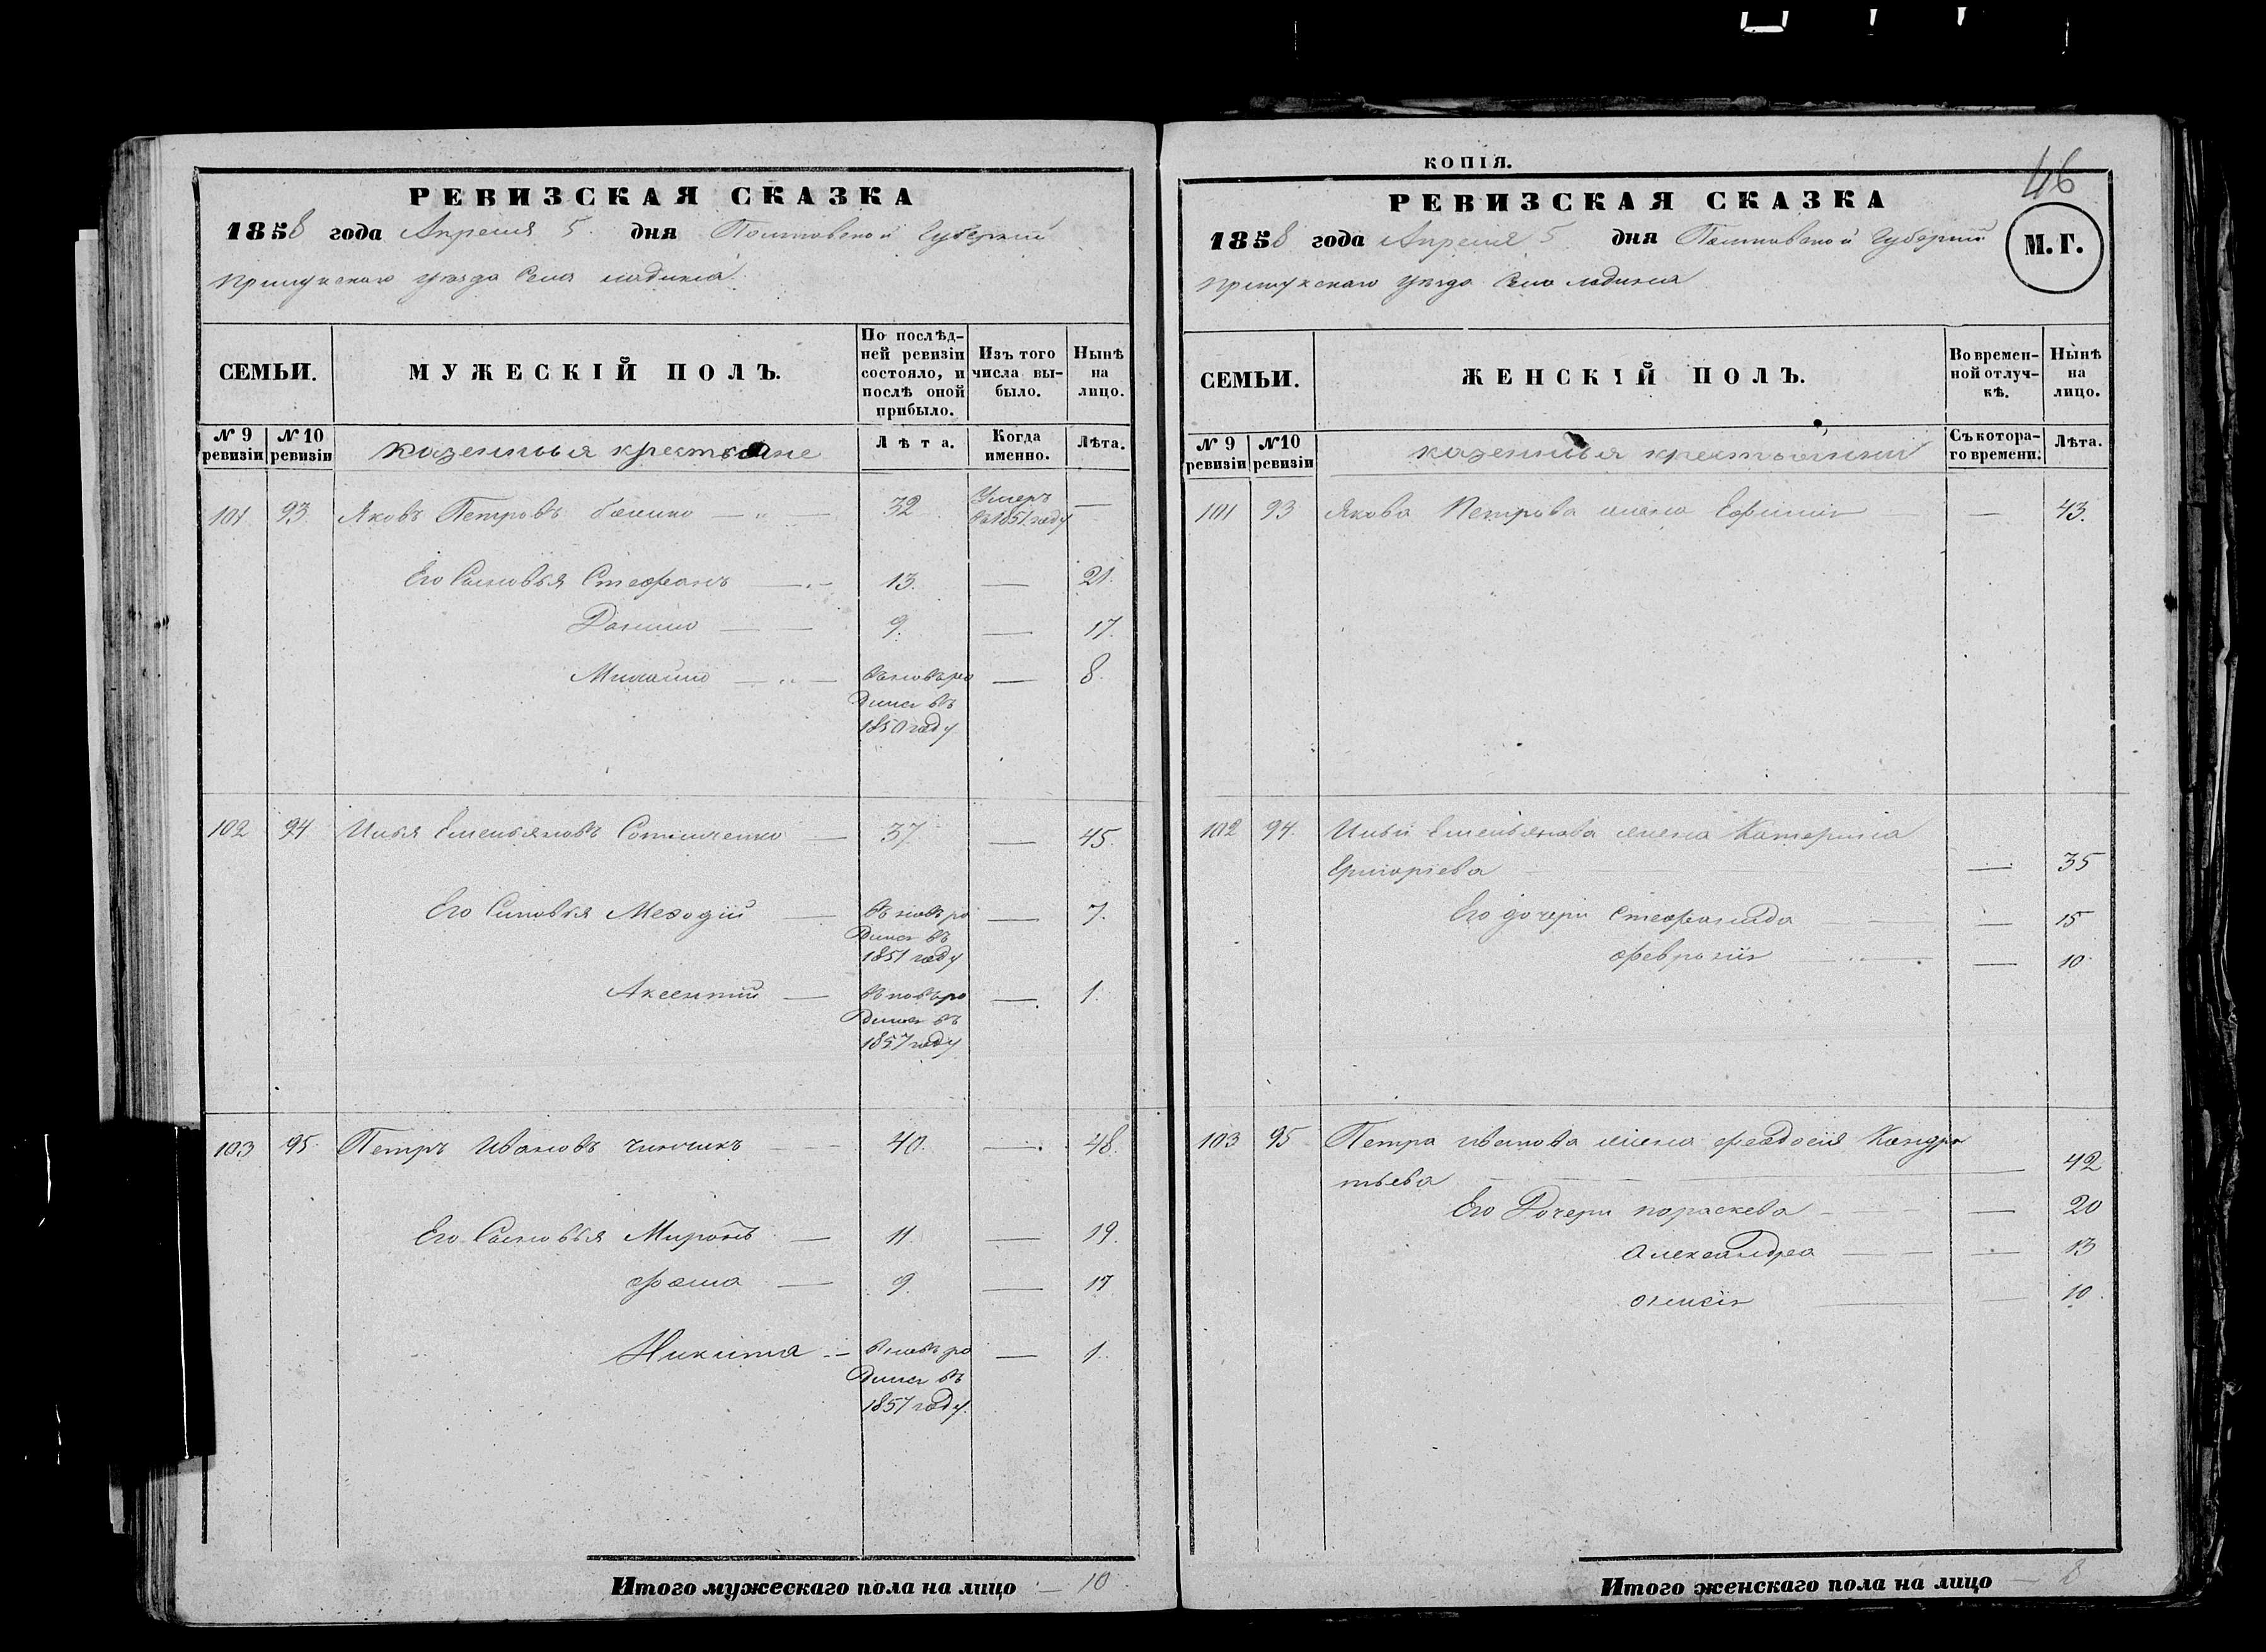 РЕВИЗСКАЯ СКАЗКА
1858 года Апреля 5 дня Полтавской Губерніи
Прилукскаго уѣзда Села Ладина
СЕМЬИ.
МУЖЕСКІЙ ПОЛЪ.
По послѣд-
ней ревизіи
состояло, и
послѣ оной
прибыло.
Изъ того
числа вы-
было.
Нынѣ
на
лицо.
№ 9
ревизіи
№ 10
ревизіи
казенныя крестьяне
Лѣта.
Когда
именно.
Лѣта.
101 93 Яковъ Петровъ 32 Умеръ
въ 1851 году
Его Сыновья Стефанъ 13. 21.
Данило 9. 17.
Михайло вновь ро 8.
дился въ
1850 году
102 94 Илья Емельяновъ 37 45.
Его Сыновья Мефодій вновь ро 7.
дился въ
1851 году
Аксентій вновь ро 1.
дился въ
1857 году
103 95 Петръ Ивановъ 40. 48.
Его Сыновья Миронъ 11. 19.
Фома 9. 17
Никита вновь ро 1.
дился въ
1857 году.
Итого мужескаго пола на лицо 10
КОПІЯ.
46
РЕВИЗСКАЯ СКАЗКА
М.Г.
1858 года Апреля 5 дня Полтавской Губерніи
Прилукскаго уѣзда Села Ладина
СЕМЬИ.
ЖЕНСКІЙ ПОЛЪ.
Во времен-
ной отлуч-
кѣ.
Нынѣ
на
лицо.
№ 9
ревизіи
№ 10
ревизіи
казенныя крестьянки
Съ котора-
го времени.
Лѣта.
101 93 Якова Петрова жена Ефимія 43.
102 94. Ильи Емельянова жена Катерина
Григоріева 35
Его дочери Стефанида 15
Февронія 10
103 95 Петра Иванова жена Феодосія Кондра
тьева 42
Его Дочери Пораскева 20
Александра 13
10.
Итого женскаго пола на лицо 8